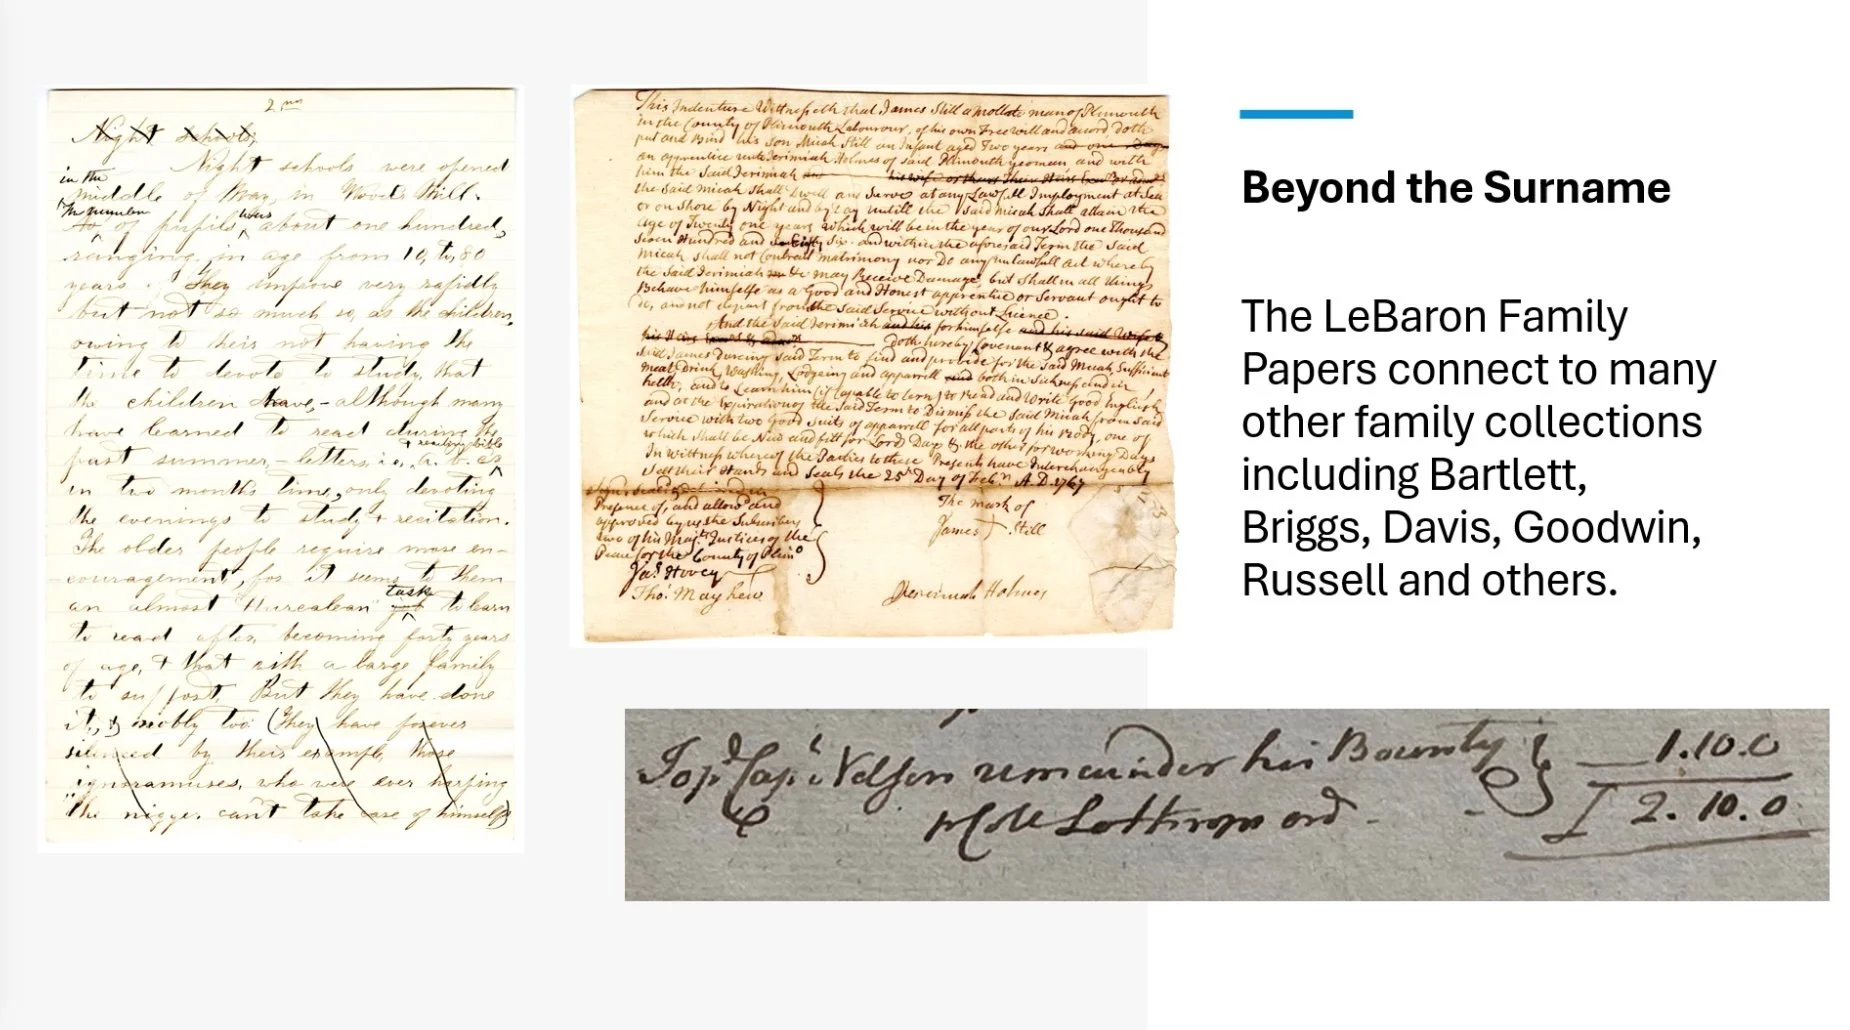 2 nd
Night schools,
Night schools were opened
in the
middle of May, in Woods Mill.
The number
No of pupils was about one hundred,
ranging in age from 10, to, 80
years. They improve very rapidly
but not so much so, as the children,
owing to their not having the
time to devote to study, that
the children have, - although many
have learned to read during the
past summer, - letters, i.e, a. b. cs
+ reading bible
in two months time, only devoting
the evenings to study + recitation.
The older people require more en-
couragement, for it seems to them
an almost Hurcalean task to learn
to read after becoming forty years
of age, + that with a large family
to support. But they have done
it, & nobly too (They have forever
silenced by their example, those
ignoramuses, who were ever harping
"the nigger can't take case of himself)
This Indenture Wittnesseth that James Still a mollato man of Plimouth
in the County of Plimouth Labourour, of his own Free will and accord, doth
put and Bind his Son Micah Still an Infant aged Two years and one Day
an apprentice unto Jerimiah Holmes of said Plimouth yeoman and with
him the Said Jerimiah and his wife or
the Said Micah Shall Dwell and Serve at any Lawfull Imployment at Sea
or on Shore by Night and by Day untill the Said Micah Shall attain the
age of Twenty one years, which will be in the year of our Lord one Thousand
Seven Hundred and Eighty Six. and within the aforesaid Term the Said
Micah shall not Contract matrimony nor Do any unlawfull act whereby
the Said Jerimiah &c may Receive Damage, but Shall in all things
Behave himselfe as a Good and Honest apprentice or Servant ought to
do, and not depart from the Said Service without Licence.
And the Said Jerimiah and his for himselfe and his said Wife
Doth hereby Covenant & agree with the
said James During said Term to find and provide for the Said Micah Sufficient
meat, Drink, Washing, Lodgeing and apparrill both in Sickness and in
helth, and to Learn him (if Capable to lern) to Read and Write Good English,
and at the Expiration of the Said Term to Dismiss the Said Micah from Said
Service with two Good Suits of apparrell for all parts of his Body, one of
which Shall be New and fitt for Lords Days & the other for working Days
In Wittness whereof the Parties to these Presents have Interchangeably
Sett their Hands and Seals the 25th Day of Febr. A.D. 1767
Presence of, and allow'd and
approved by us the Subscribers
two of his Maj.ts Justices of the
Peace for the County of Plimo
Jas. Hovey
Tho.s Mayhew
The mark of
James Still
Jerimiah Holmes
Beyond the Surname
The LeBaron Family
Papers connect to many
other family collections
including Bartlett,
Briggs, Davis, Goodwin,
Russell and others.
To pd Capt Nelson remainder his Bounty 1.10.0
pr Col Lothrops ord - 2.10.0